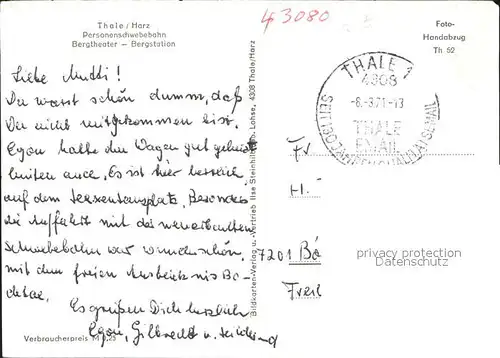 Thale / Harz
Personenschwebebahn
Bergtheater — Bergstation
43080
Foto-
Handabzug
Th 62
THALE 1
4308
-8.-3.71.-13
THALE
EMAIL
SEIT 1836 QUALITÄTSEMAIL
Liebe Mutti!
Du warst schön dumm, daß
Du nicht mitgekommen bist.
Egon hatte den Wagen gut geheizt
hinten auch. Es ist hier herrlich
auf dem Hexentanzplatz. Besonders
die Auffahrt mit der neuerbauten
Schwebebahn war wunderschön,
mit dem freien Ausblick ins Bo-
detal.
Es grüßen Dich herzlich
Egon, u.
Fr
H.
7201 Bö
Frei
privacy protection
Datenschutz
Bildkarten-Verlag u. -Vertrieb Ilse Steinh Lohse, 4308 Thale/Harz
Verbraucherpreis M 0,25